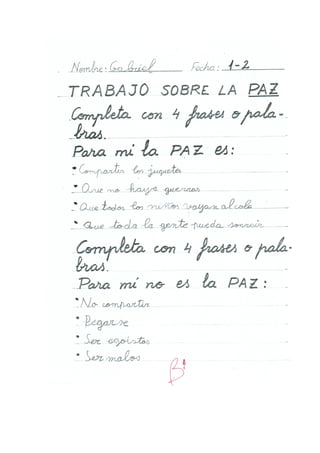 Nombre: Gabriel Fecha: 1-2
TRABAJO SOBRE LA PAZ
Completa con 4 frases o pala-
bras.
Para mi la PAZ es:
• Compartir los juguetes
• Que no haya guerras
• Que todos los niños vayan al cole
• Que toda la gente pueda sonreir
Completa con 4 frases o pala-
bras.
Para mi no es la PAZ:
• No compartir
• Pegarse
• Ser egoistas
• Ser malos
B!